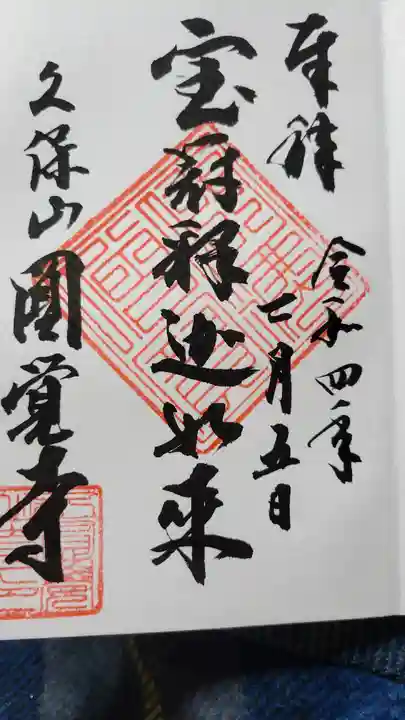 奉拝
令和四年
七月五日
宝冠釋迦如来
久保山圓覚寺